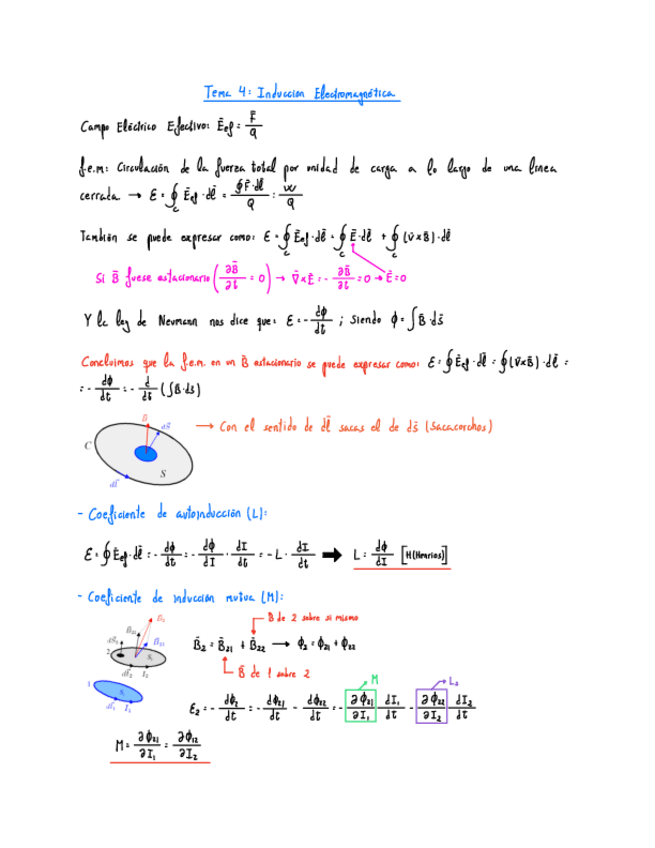 Tema 4: Inducción Electromagnética
Campo Eléctrico Efectivo: Ēef = F̄/q
f.e.m: Circulación de la fuerza total por unidad de carga a lo largo de una línea
cerrada → ε = ∮c Ēef · dl̄ = ∮F̄·dl̄/q = W/q
También se puede expresar como: ε = ∮c Ēef · dl̄ = ∮c Ē · dl̄ + ∮c (v̄ × B̄) · dl̄
Si B̄ fuese estacionario (∂B̄/∂t = 0) → ∇̄ × Ē = - ∂B̄/∂t = 0 → Ē = 0
Y la ley de Neumann nos dice que: ε = - dϕ/dt ; siendo ϕ = ∫ B̄ · ds̄
Concluimos que la f.e.m. en un B̄ estacionario se puede expresar como: ε = ∮ Ēef · dl̄ = ∮ (v̄ × B̄) · dl̄ =
= - dϕ/dt = - d/dt (∫ B̄ · ds̄)
B̄
dS̄
C
S
dl̄
→ Con el sentido de dl̄ sacas el de ds̄ (Sacacorchos)
- Coeficiente de autoinducción (L):
ε = ∮ Ēef · dl̄ = - dϕ/dt = - dϕ/dI · dI/dt = - L · dI/dt ➡ L = dϕ/dI [H (Henrios)]
- Coeficiente de inducción mutua (M):
B̄ de 2 sobre si mismo
B̄₂ = B̄₂₁ + B̄₂₂ → ϕ₂ = ϕ₂₁ + ϕ₂₂
B̄ de 1 sobre 2
M
L₂
ε₂ = - dϕ₂/dt = - dϕ₂₁/dt - dϕ₂₂/dt = - ∂ϕ₂₁/∂I₁ dI₁/dt - ∂ϕ₂₂/∂I₂ dI₂/dt
M = ∂ϕ₂₁/∂I₁ = ∂ϕ₁₂/∂I₂